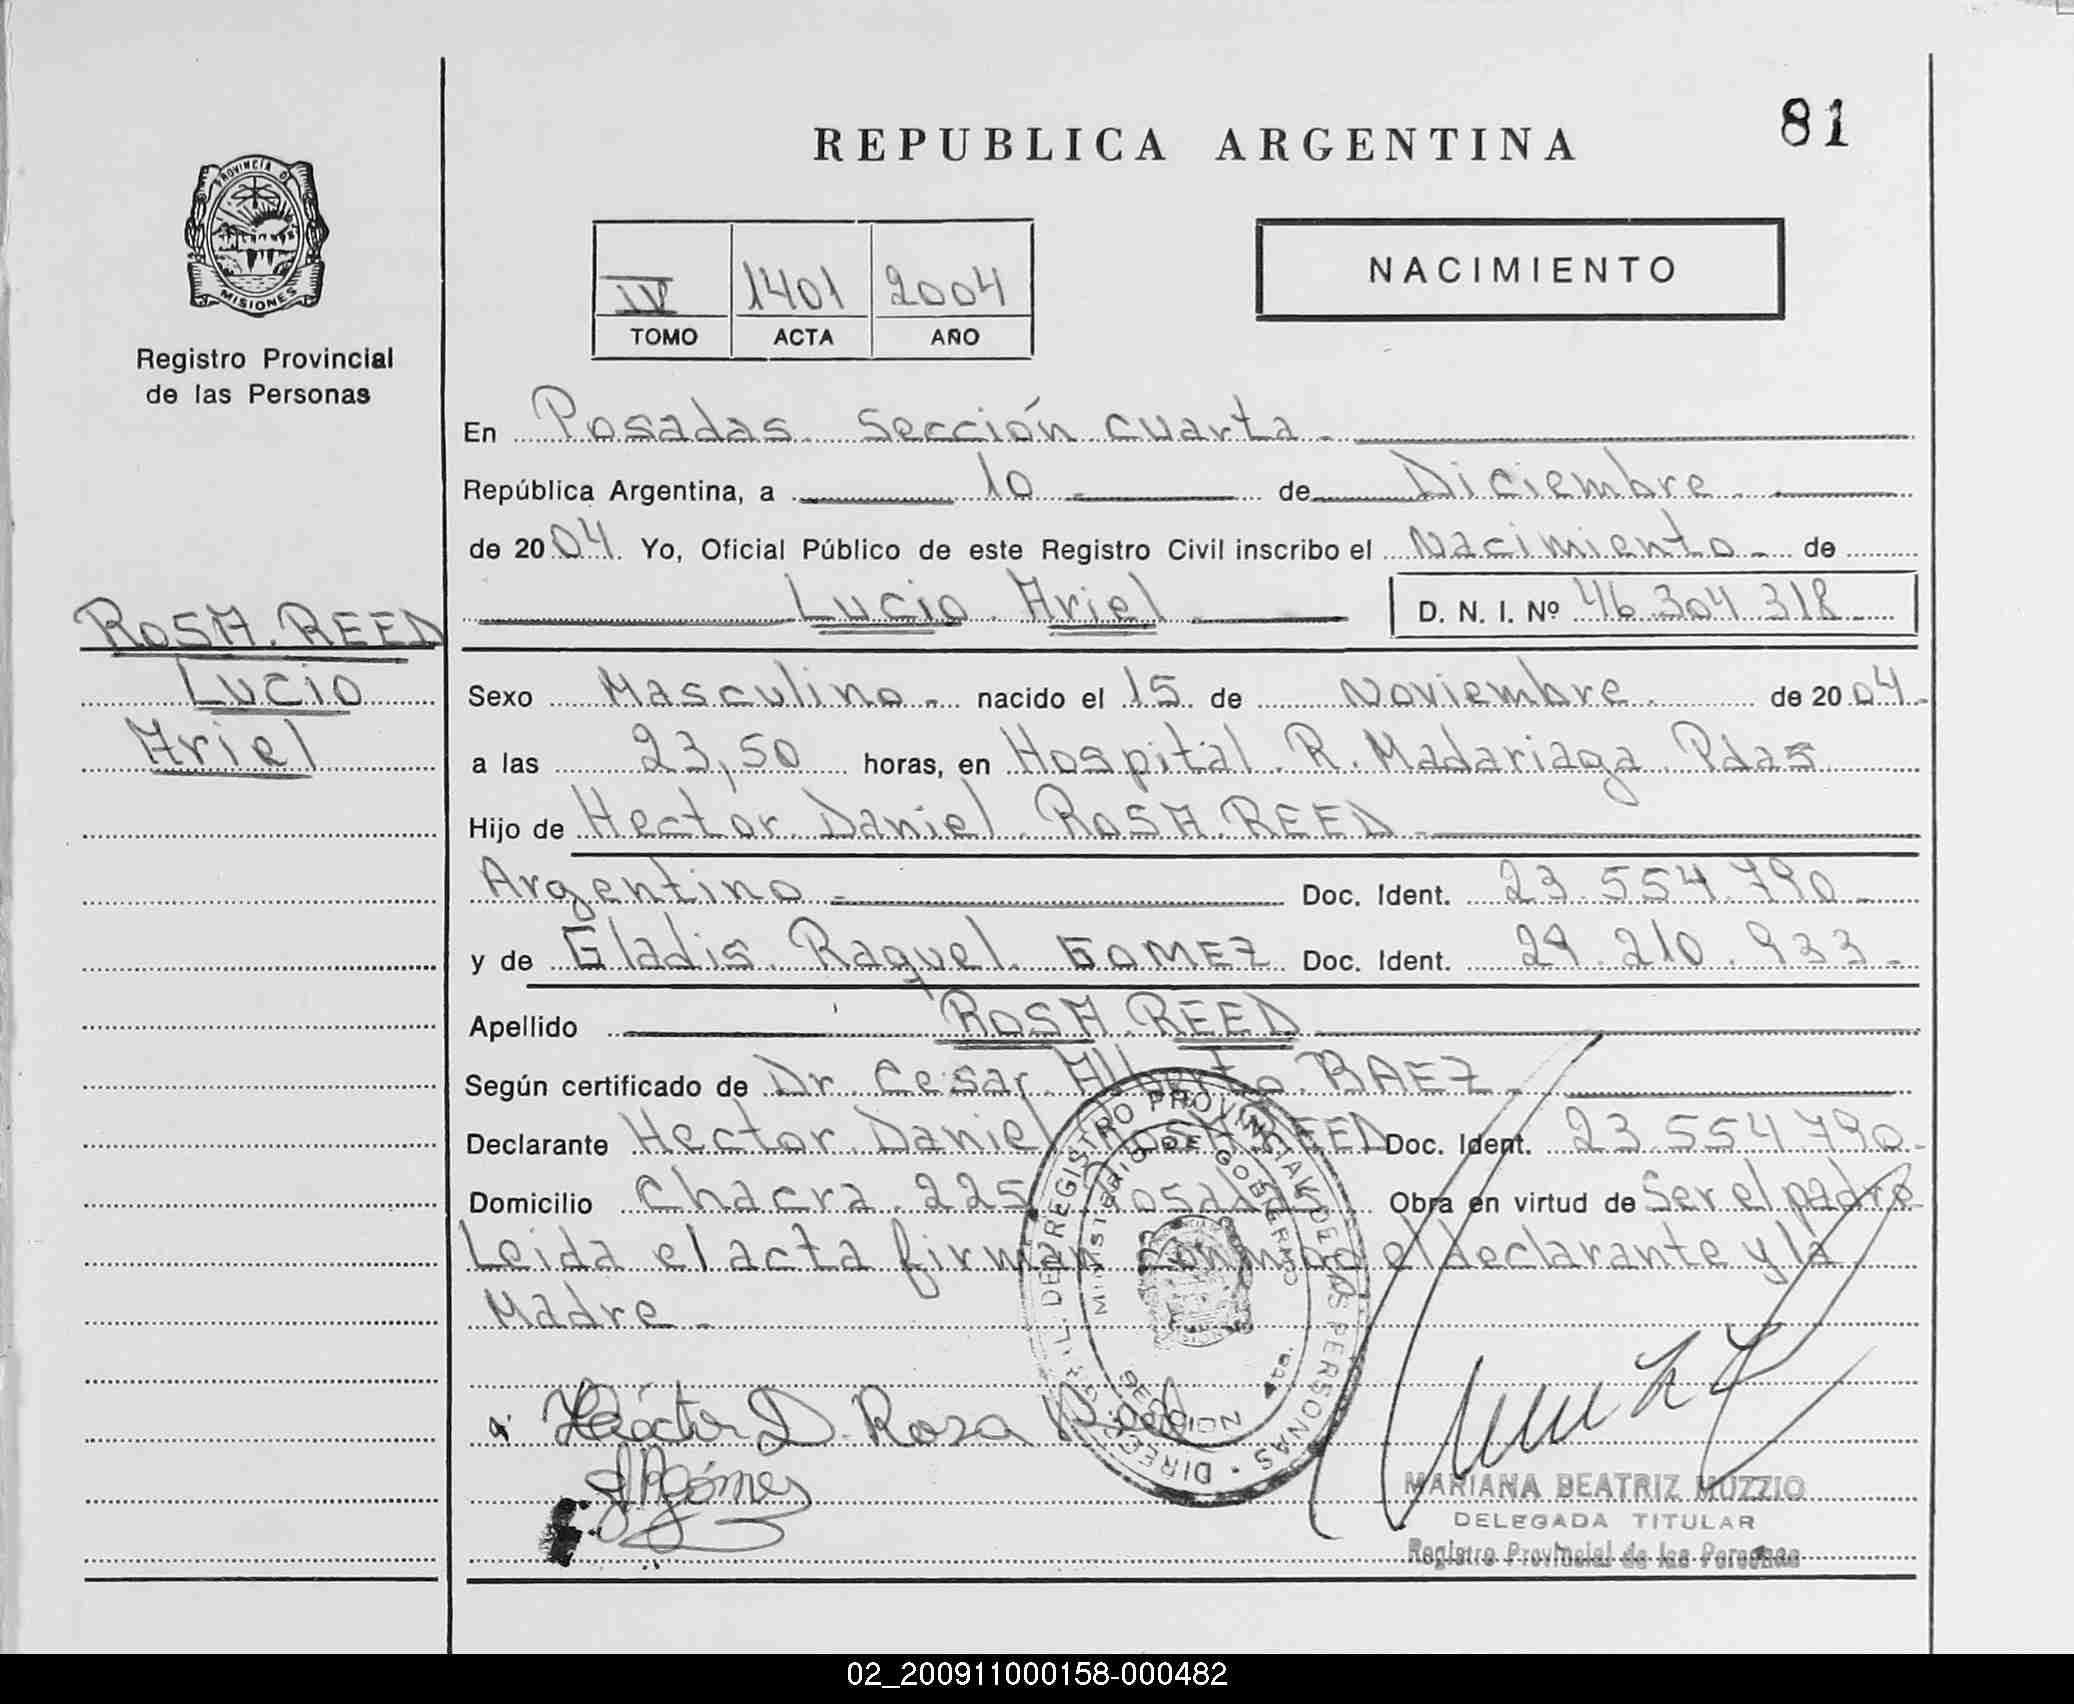 REPUBLICA ARGENTINA
81
PROVINCIA DE
MISIONES
Registro Provincial
de las Personas
IV 1401 2004
TOMO ACTA AÑO
NACIMIENTO
En Posadas Sección cuarta
República Argentina, a 10 de Diciembre
de 2004 Yo, Oficial Público de este Registro Civil inscribo el Nacimiento de
Lucio Ariel D. N. I. Nº 46.304.318
ROSA REED
Lucio
Ariel
Sexo Masculino nacido el 15 de Noviembre de 2004
a las 23,50 horas, en Hospital R. Madariaga Pdas
Hijo de Hector Daniel ROSA REED
Argentino Doc. Ident. 23.554.790
y de Gladis Raquel GOMEZ Doc. Ident. 29.210.933
Apellido ROSA REED
Según certificado de Dr. Cesar Alberto BAEZ
Declarante Hector Daniel ROSA REED Doc. Ident. 23.554.790
Domicilio Chacra 225 Posadas Obra en virtud de Ser el padre
Leida el acta firman conmigo el declarante y la
Madre
Héctor D. Rosa Reed
DIRECC. GRAL. DEL REGISTRO PROVINCIAL DE LAS PERSONAS
MINISTERIO DE GOBIERNO
SECCION 4ta.
MARIANA BEATRIZ MUZZIO
DELEGADA TITULAR
Registro Provincial de las Personas
02_200911000158-000482